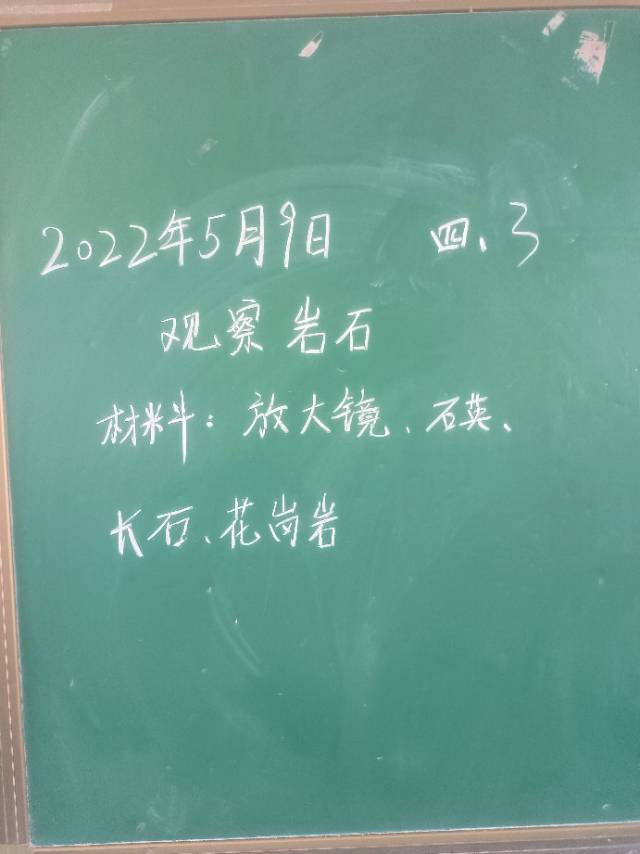 2022年5月9日 四、3
观察岩石
材料：放大镜、石英、
长石、花岗岩